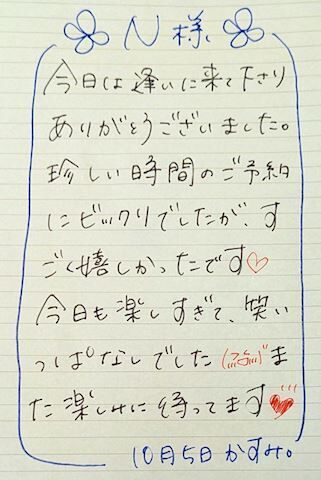 N様
今日は逢いに来て下さり
ありがとうございました。
珍しい時間のご予約
にビックリでしたが、す
ごく嬉しかったです♡
今日も楽しすぎて、笑い
っぱなしでした ま
た楽しみに待ってます♥
10月5日 かすみ。